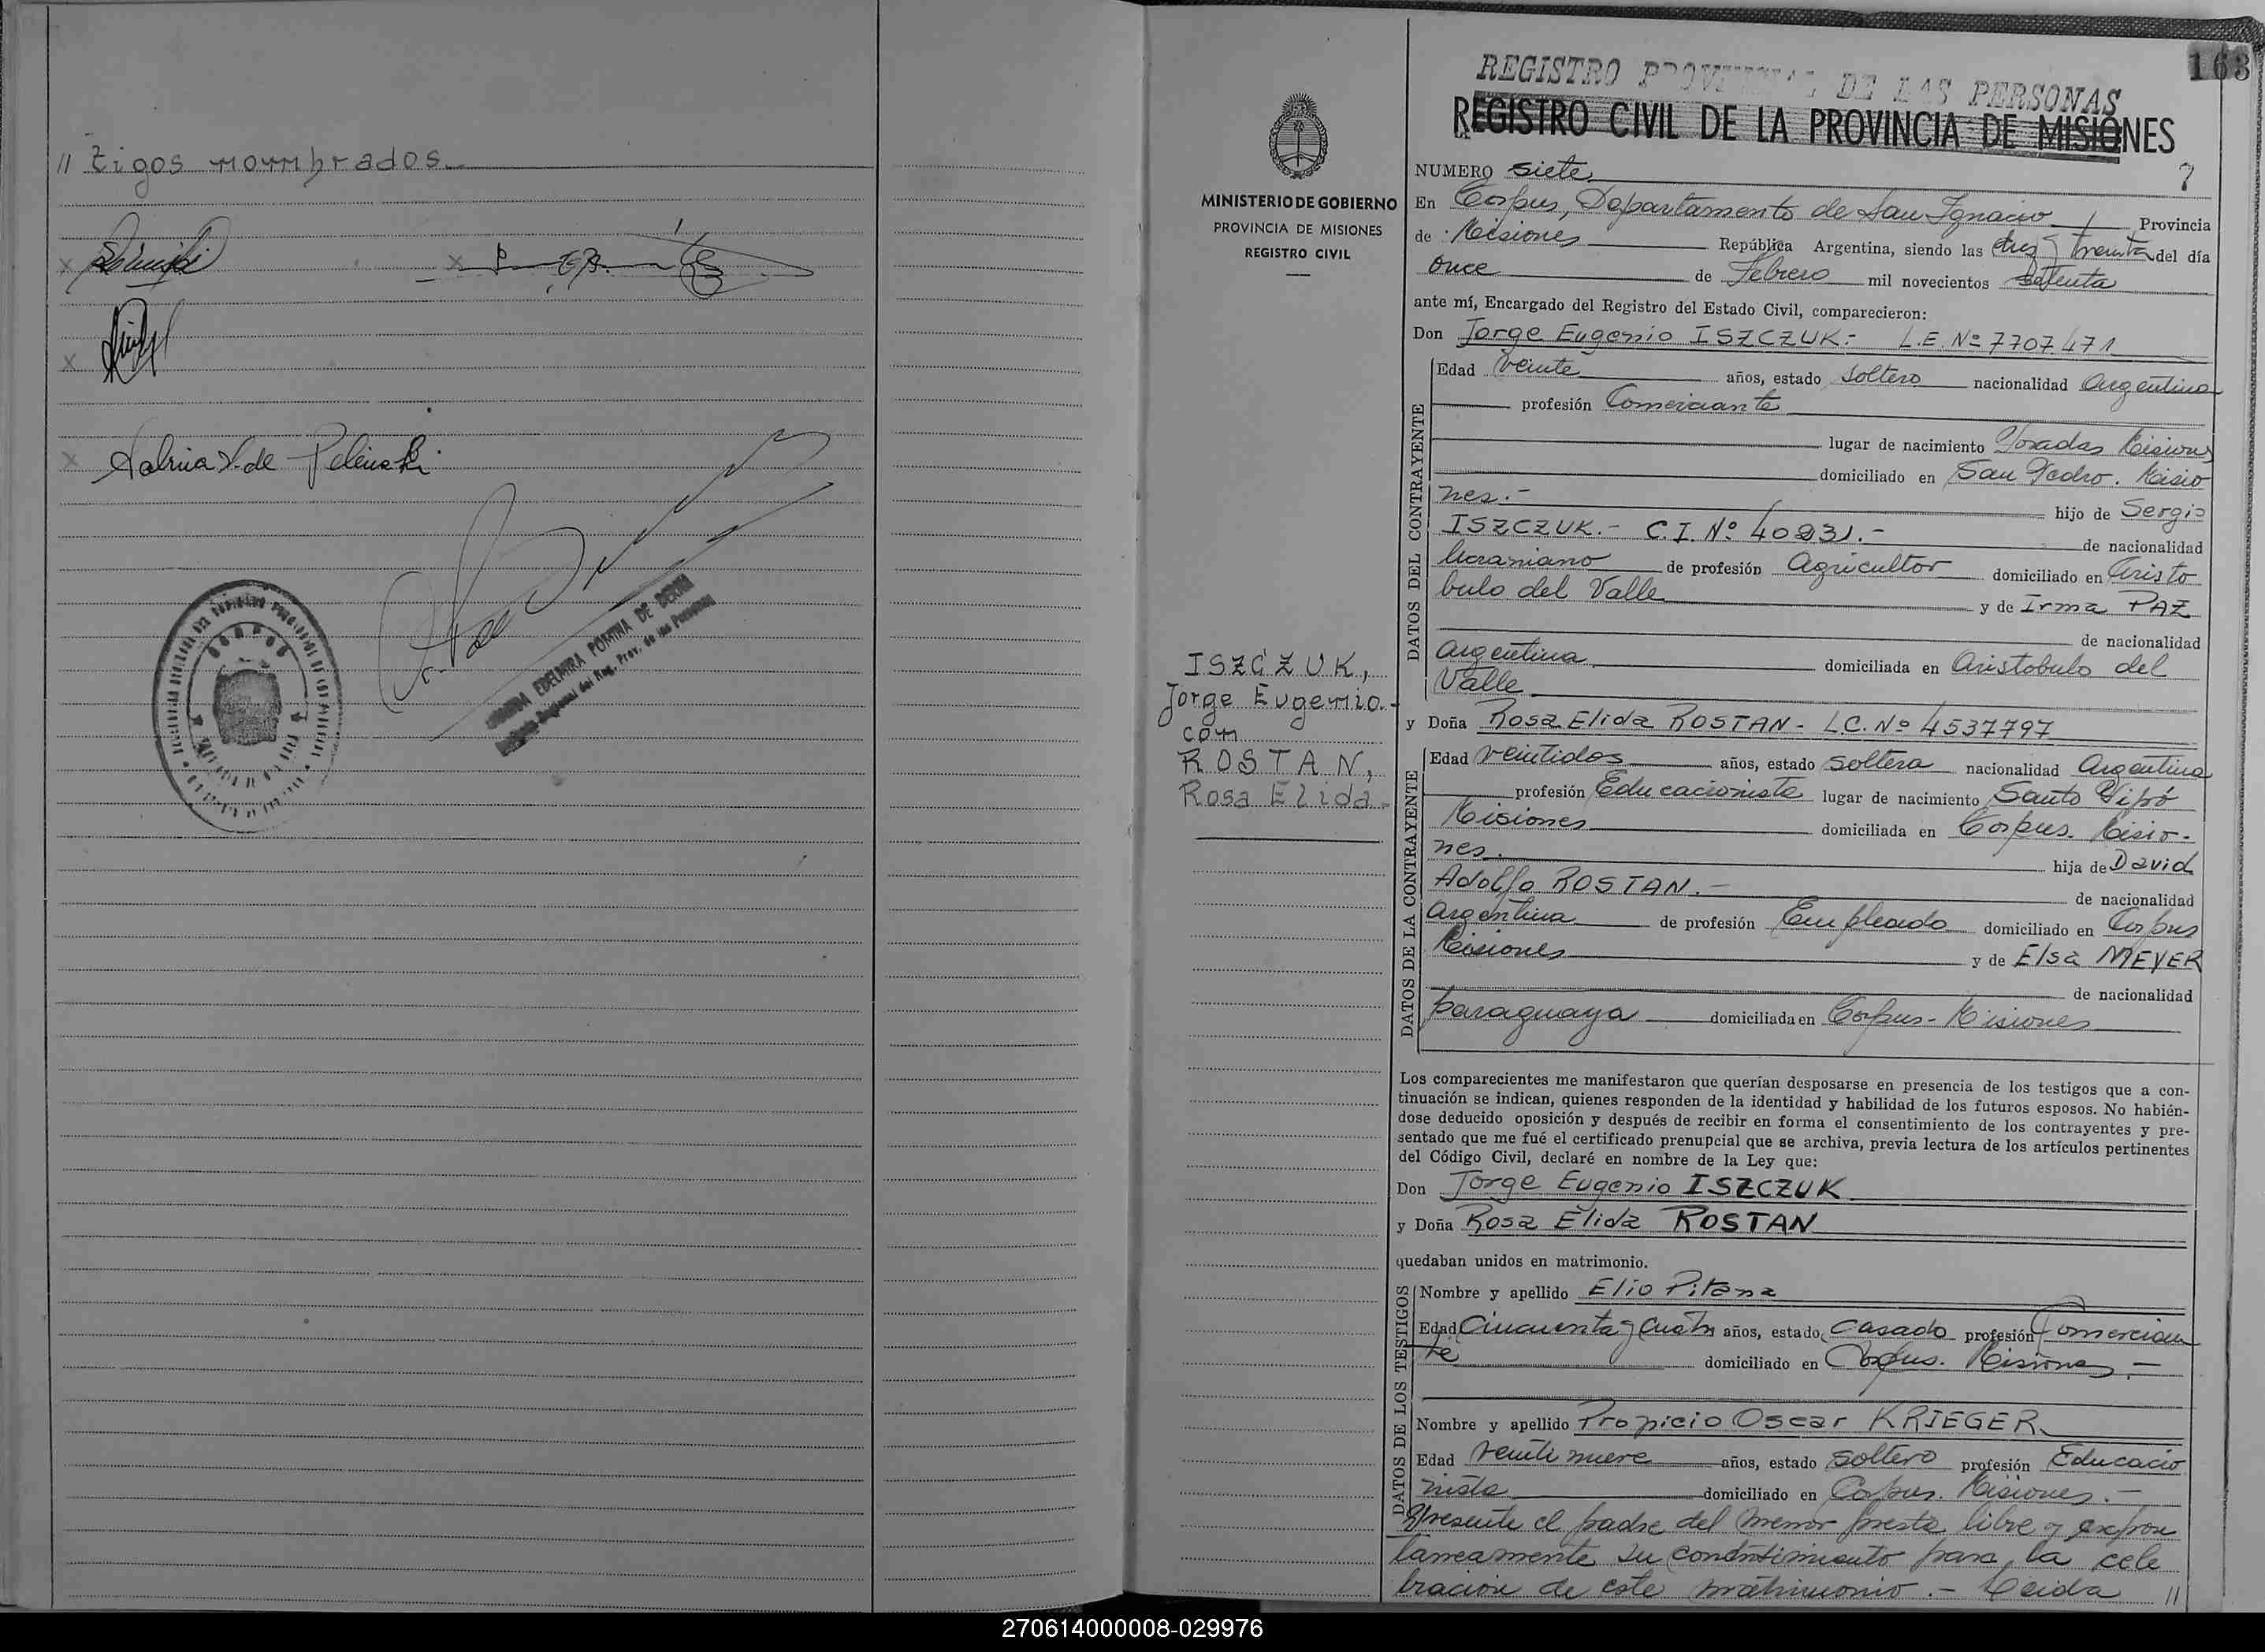 // tigos nombrados.
x
x
x
x de Pelinski
EDELMIRA POMINA DE
Reg. Prov. de las Personas
163
REGISTRO PROVINCIAL DE LAS PERSONAS
REGISTRO CIVIL DE LA PROVINCIA DE MISIONES
MINISTERIO DE GOBIERNO
PROVINCIA DE MISIONES
REGISTRO CIVIL
ISZCZUK,
Jorge Eugenio.-
con
ROSTAN,
Rosa Elida.-
NUMERO siete 7
En Corpus, Departamento de San Ignacio Provincia
de Misiones República Argentina, siendo las diez y treinta del día
once de Febrero mil novecientos setenta
ante mí, Encargado del Registro del Estado Civil, comparecieron:
Don Jorge Eugenio ISZCZUK.- L.E. Nº 7707.471
DATOS DEL CONTRAYENTE
Edad Veinte años, estado soltero nacionalidad Argentina
profesión Comerciante
lugar de nacimiento Posadas Misiones
domiciliado en San Pedro. Misio
nes.- hijo de Sergio
ISZCZUK.- C.I. Nº 40931.- de nacionalidad
Ucraniano de profesión Agricultor domiciliado en Aristo
bulo del Valle y de Irma PAZ
de nacionalidad
Argentina domiciliada en Aristobulo del
Valle
y Doña Rosa Elida ROSTAN - L.C. Nº 4537797
DATOS DE LA CONTRAYENTE
Edad Veintidos años, estado soltera nacionalidad Argentina
profesión Educacionista lugar de nacimiento Santo Pipó
Misiones domiciliada en Corpus. Misio-
nes. hija de David
Adolfo ROSTAN.- de nacionalidad
Argentina de profesión Empleado domiciliado en Corpus
Misiones y de Elsa MEYER
de nacionalidad
paraguaya domiciliada en Corpus - Misiones
Los comparecientes me manifestaron que querían desposarse en presencia de los testigos que a con-
tinuación se indican, quienes responden de la identidad y habilidad de los futuros esposos. No habién-
dose deducido oposición y después de recibir en forma el consentimiento de los contrayentes y pre-
sentado que me fué el certificado prenupcial que se archiva, previa lectura de los artículos pertinentes
del Código Civil, declaré en nombre de la Ley que:
Don Jorge Eugenio ISZCZUK
y Doña Rosa Elida ROSTAN
quedaban unidos en matrimonio.
DATOS DE LOS TESTIGOS
Nombre y apellido Elio Pitana
Edad Cincuenta y Cuatro años, estado Casado profesión Comercian
te domiciliado en Corpus. Misiones.-
Nombre y apellido Propicio Oscar KRIEGER
Edad Veintinueve años, estado soltero profesión Educacio
nista domiciliado en Corpus. Misiones.-
Presente el padre del menor presta libre y expon
taneamente su consentimiento para la cele
bración de este matrimonio.- Leida //
270614000008-029976